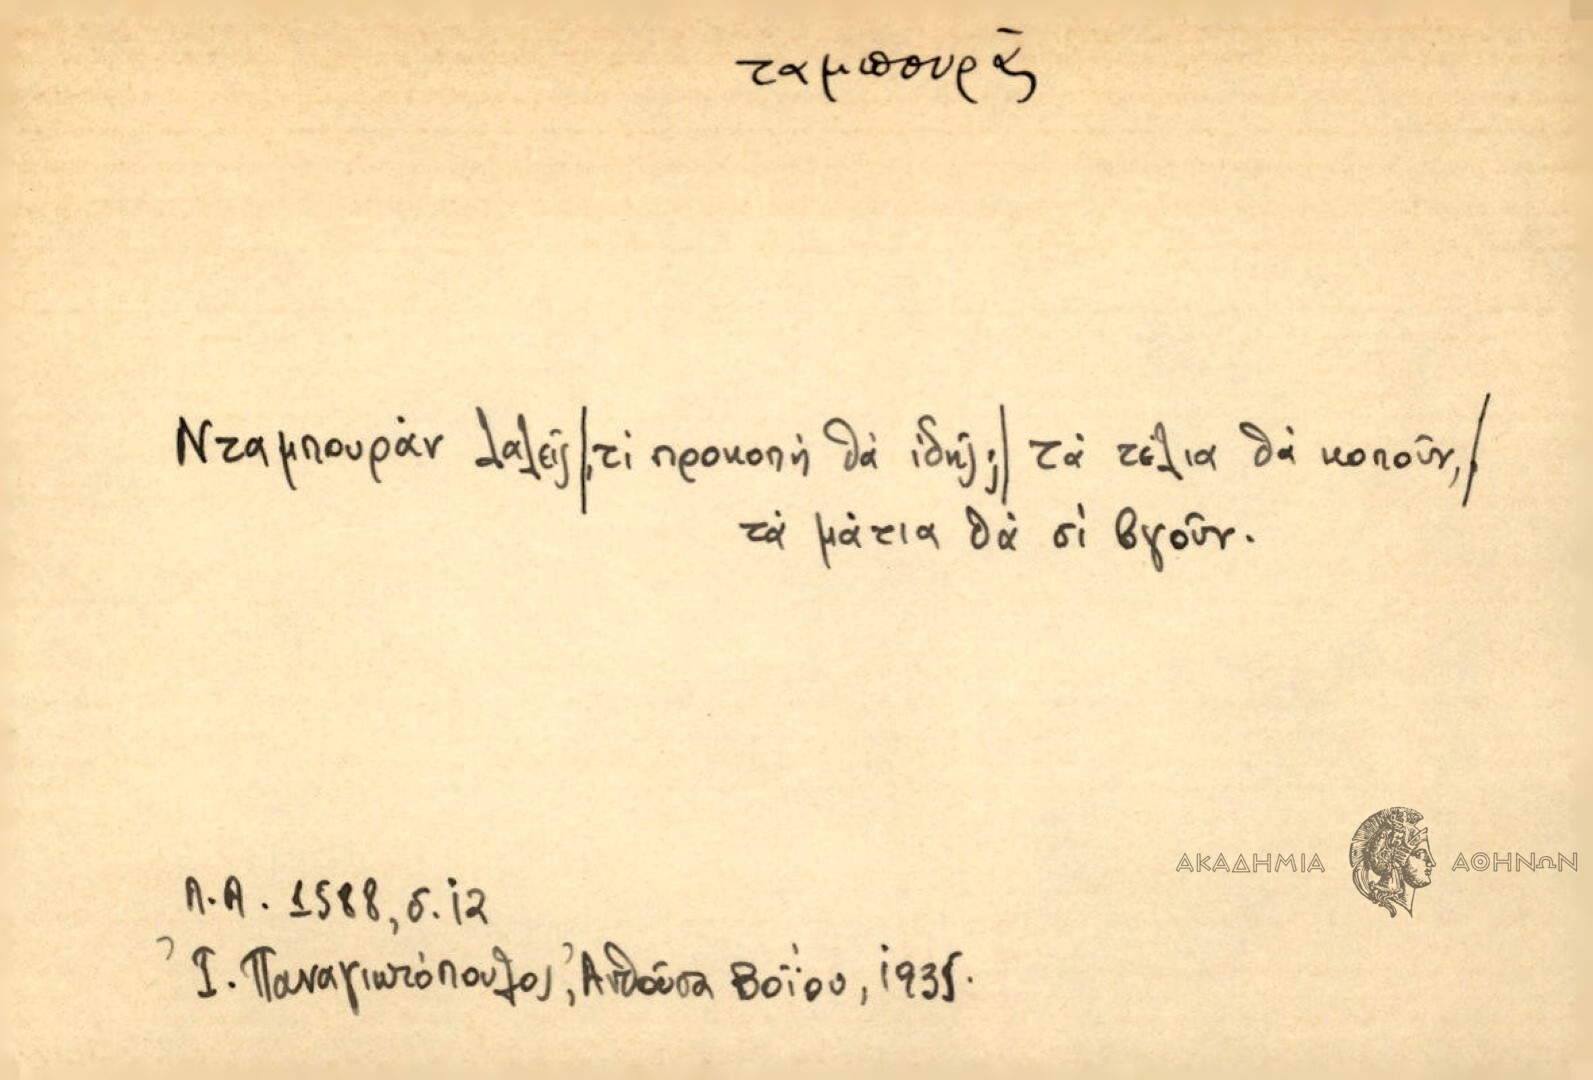 ταμπουρᾶς
Νταμπουρὰν λαλεῖς/,τὶ προκοπὴ θὰ ἰδῆς;/ τὰ τέλια θὰ κοποῦν,/
τὰ μάτια θὰ σὶ βγοῦν.
ΑΚΑΔΗΜΙΑ ΑΘΗΝΩΝ
Λ.Α. 1588, σ. 12
Ἰ. Παναγιωτόπουλος, Ἀνθοῦσα Βοΐου, 1935.